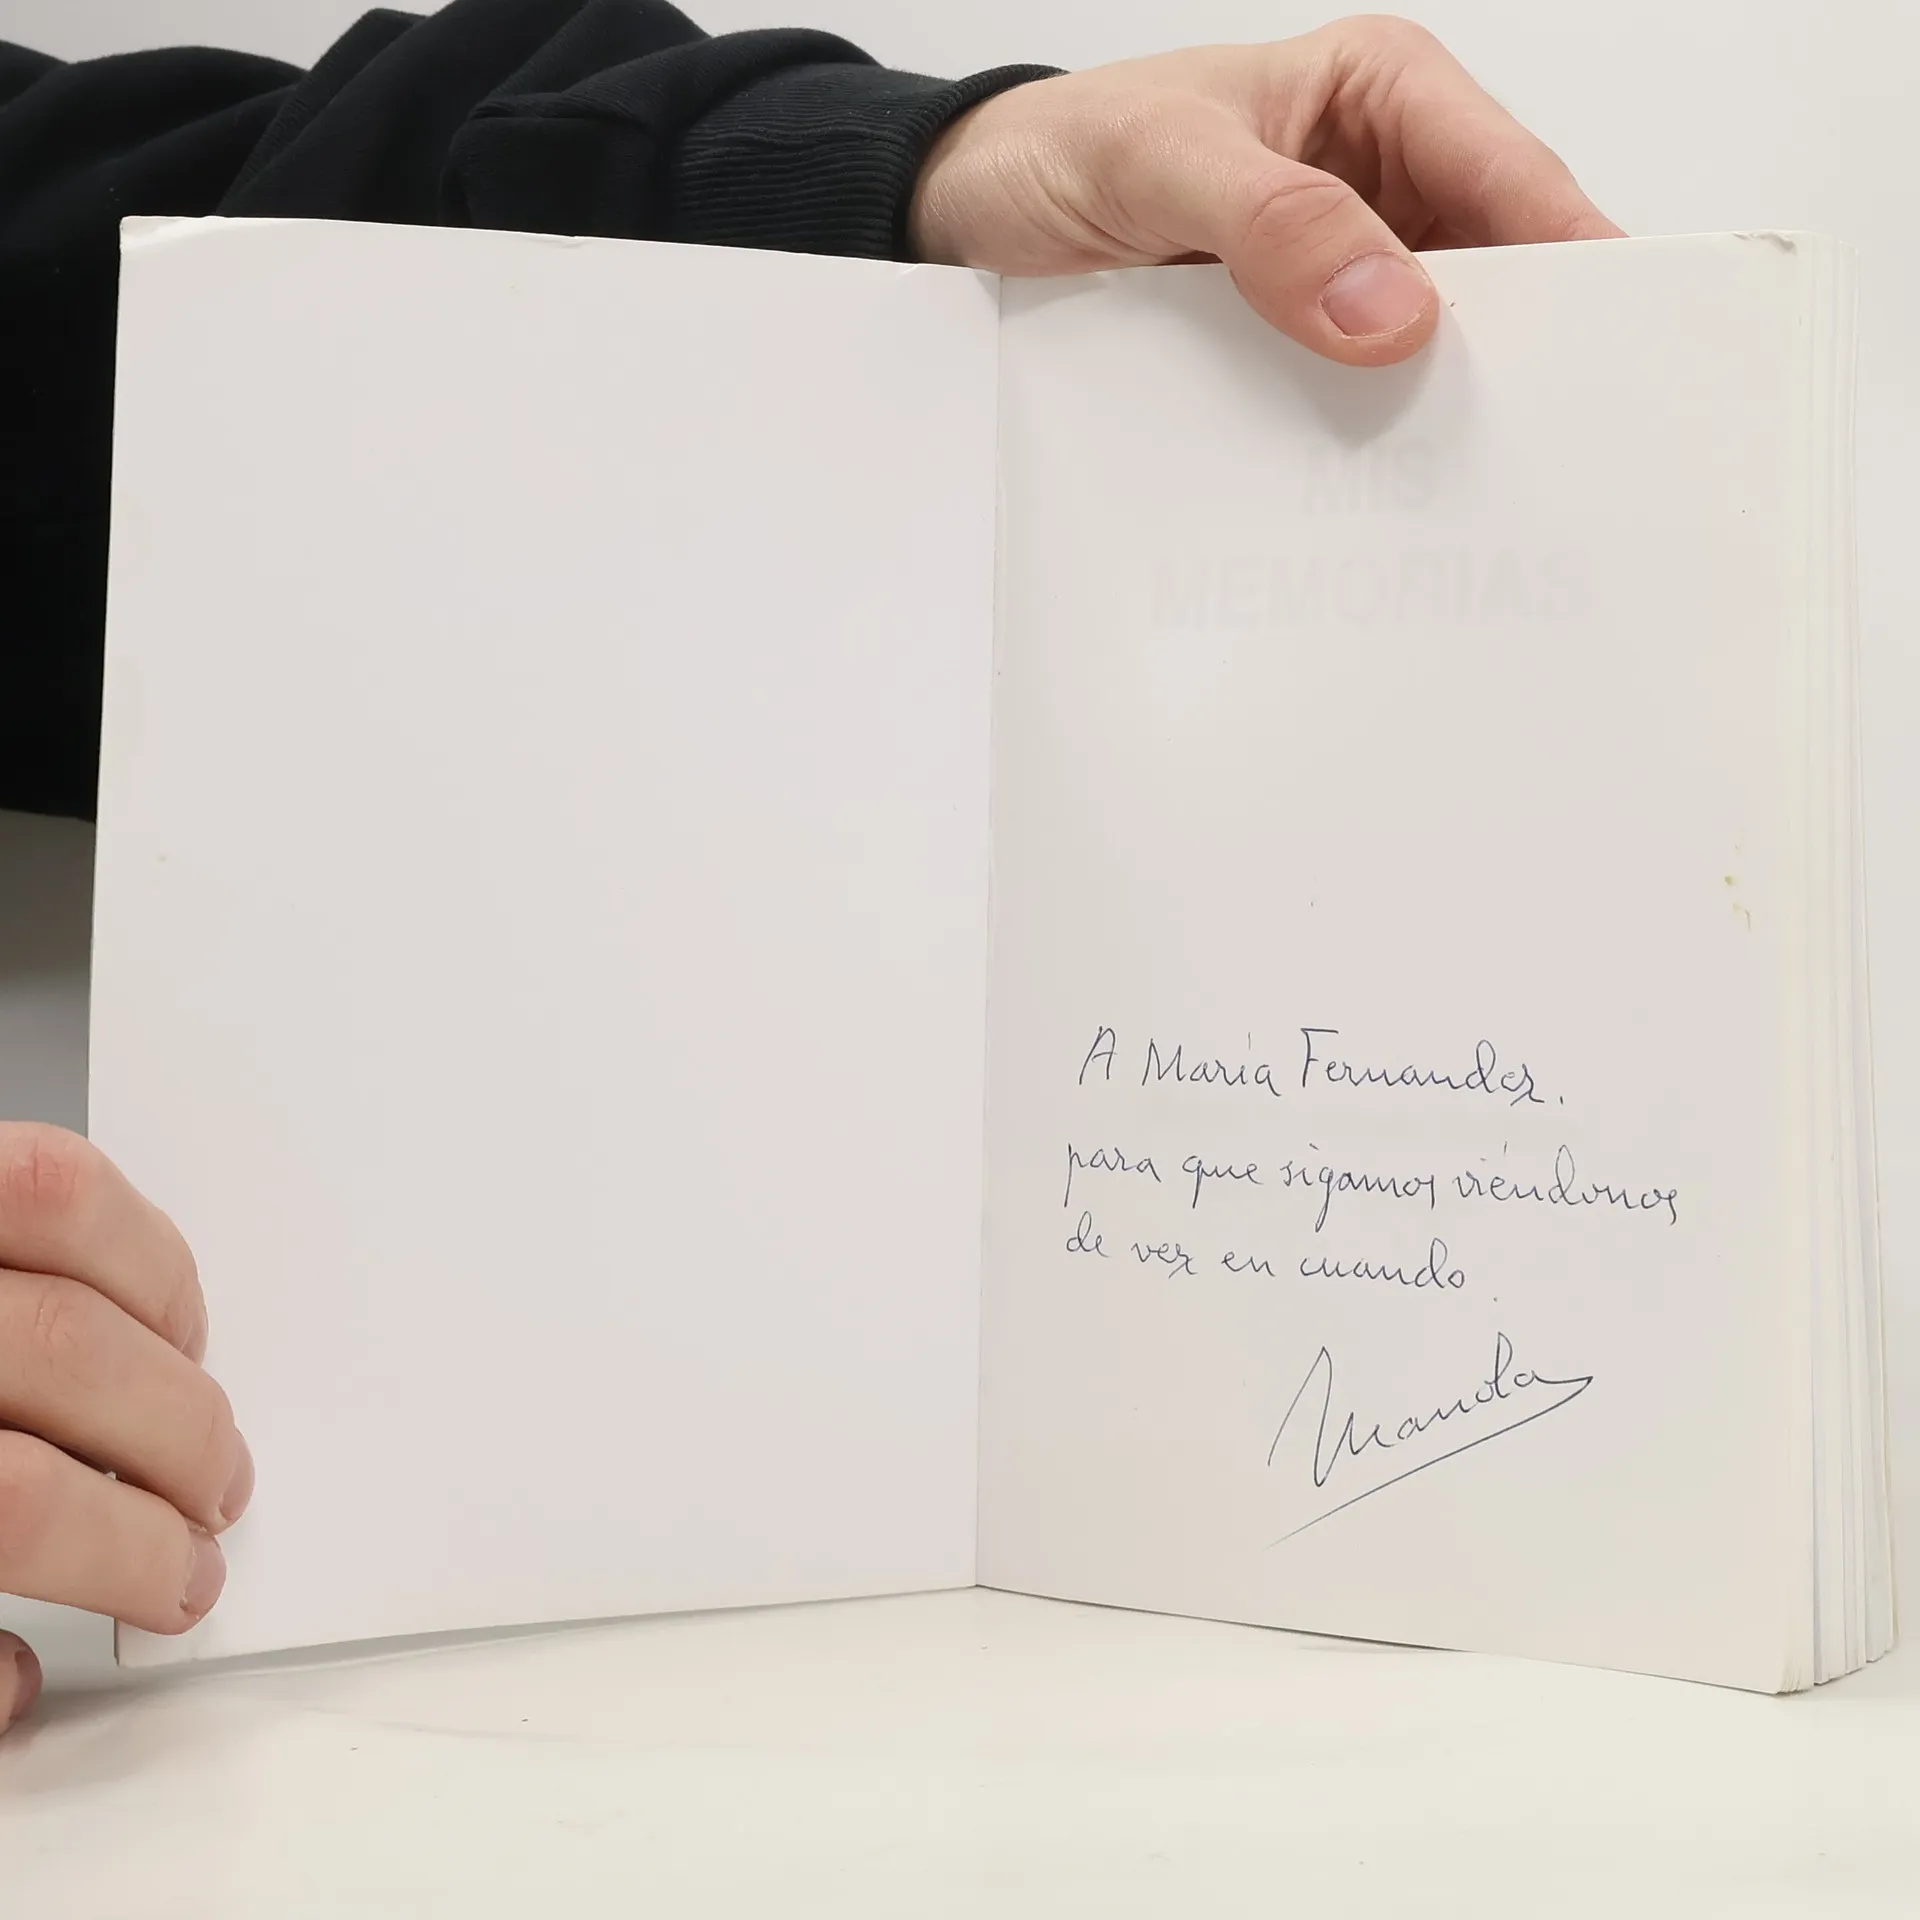 MIS
MEMORIAS
A María Fernandez.
para que sigamos viéndonos
de vez en cuando.
Manola